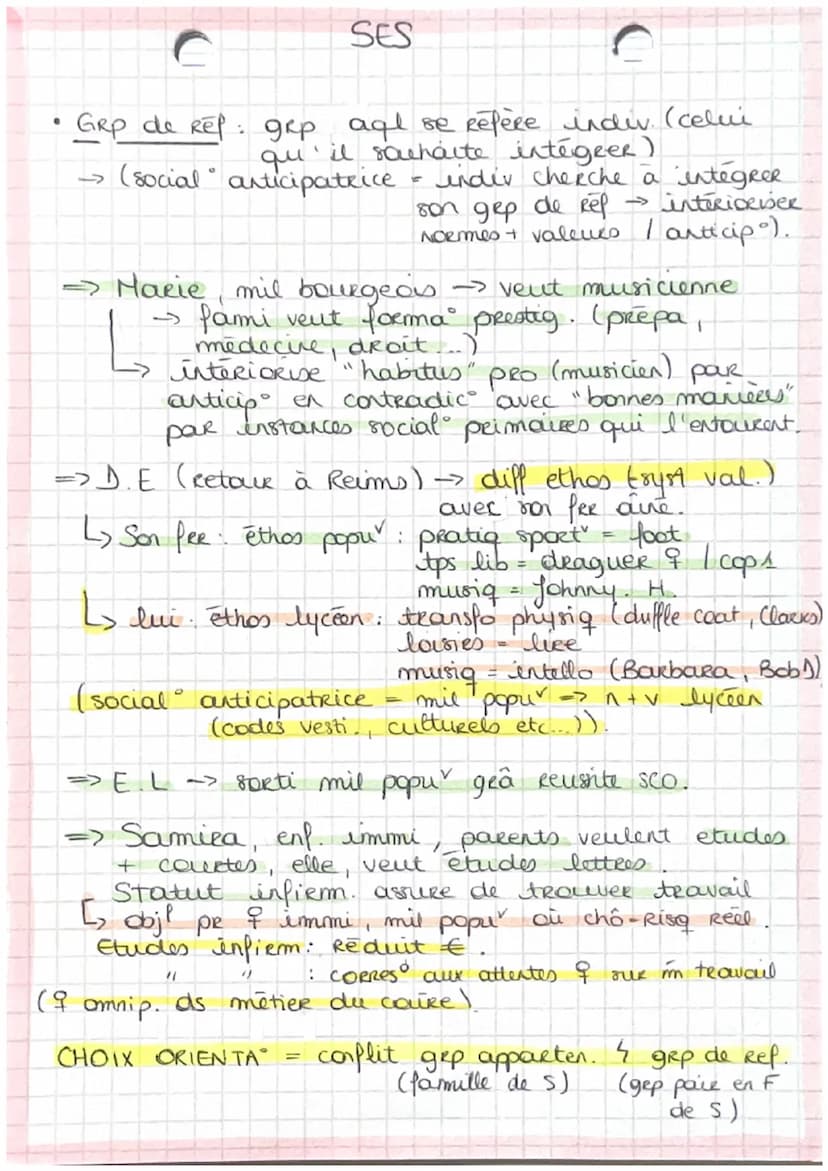 SES
• GRP de Réf : grp aql se réfère indiv. (celui
qu'il souhaite intégrer)
→ (social° anticipatrice = indiv cherche à intégrer
son grp de réf → intérioriser
normes + valeurs / anticip°).
=> Marie, mil bourgeois → veut musicienne
→ fami veut forma° prestig. (prépa,
médecine, droit...)
↳ intériorise "habitus" pro (musicien) par
anticip° en contradic° avec "bonnes manières"
par instances social° primaires qui l'entourent.
=> D.E (retour à Reims) → diff ethos (syst val.)
avec son frr aîné.
↳ Son frr : éthos popuʳ : pratiq sportᵛ = foot
tps lib = draguer ♀ / cops
musiq = Johnny. H.
↳ lui : éthos lycéen : transfo physiq (duffle coat, Clarks)
loisirs = lire
musiq = intello (Barbara, Bob D)
(social° anticipatrice = mil popuʳ → n+v lycéen
(codes vesti., culturels etc...)).
=> E.L → sorti mil popuʳ grâ réusite sco.
=> Samira, enf. immi, parents veulent etudes
+ courtes, elle, veut études lettres.
Statut infirm. assure de trouver travail
↳ objᶠ pr ♀ immi, mil popuʳ où chô-risq réel.
Etudes infirm : Réduit €.
" " : corres° aux attentes ♀ sur m̂ travail
(♀ omnip. ds métier du caire)
CHOIX ORIENTA° = conflit grp apparten. ↯ grp de ref.
(famille de S) (grp pair en F
de S)